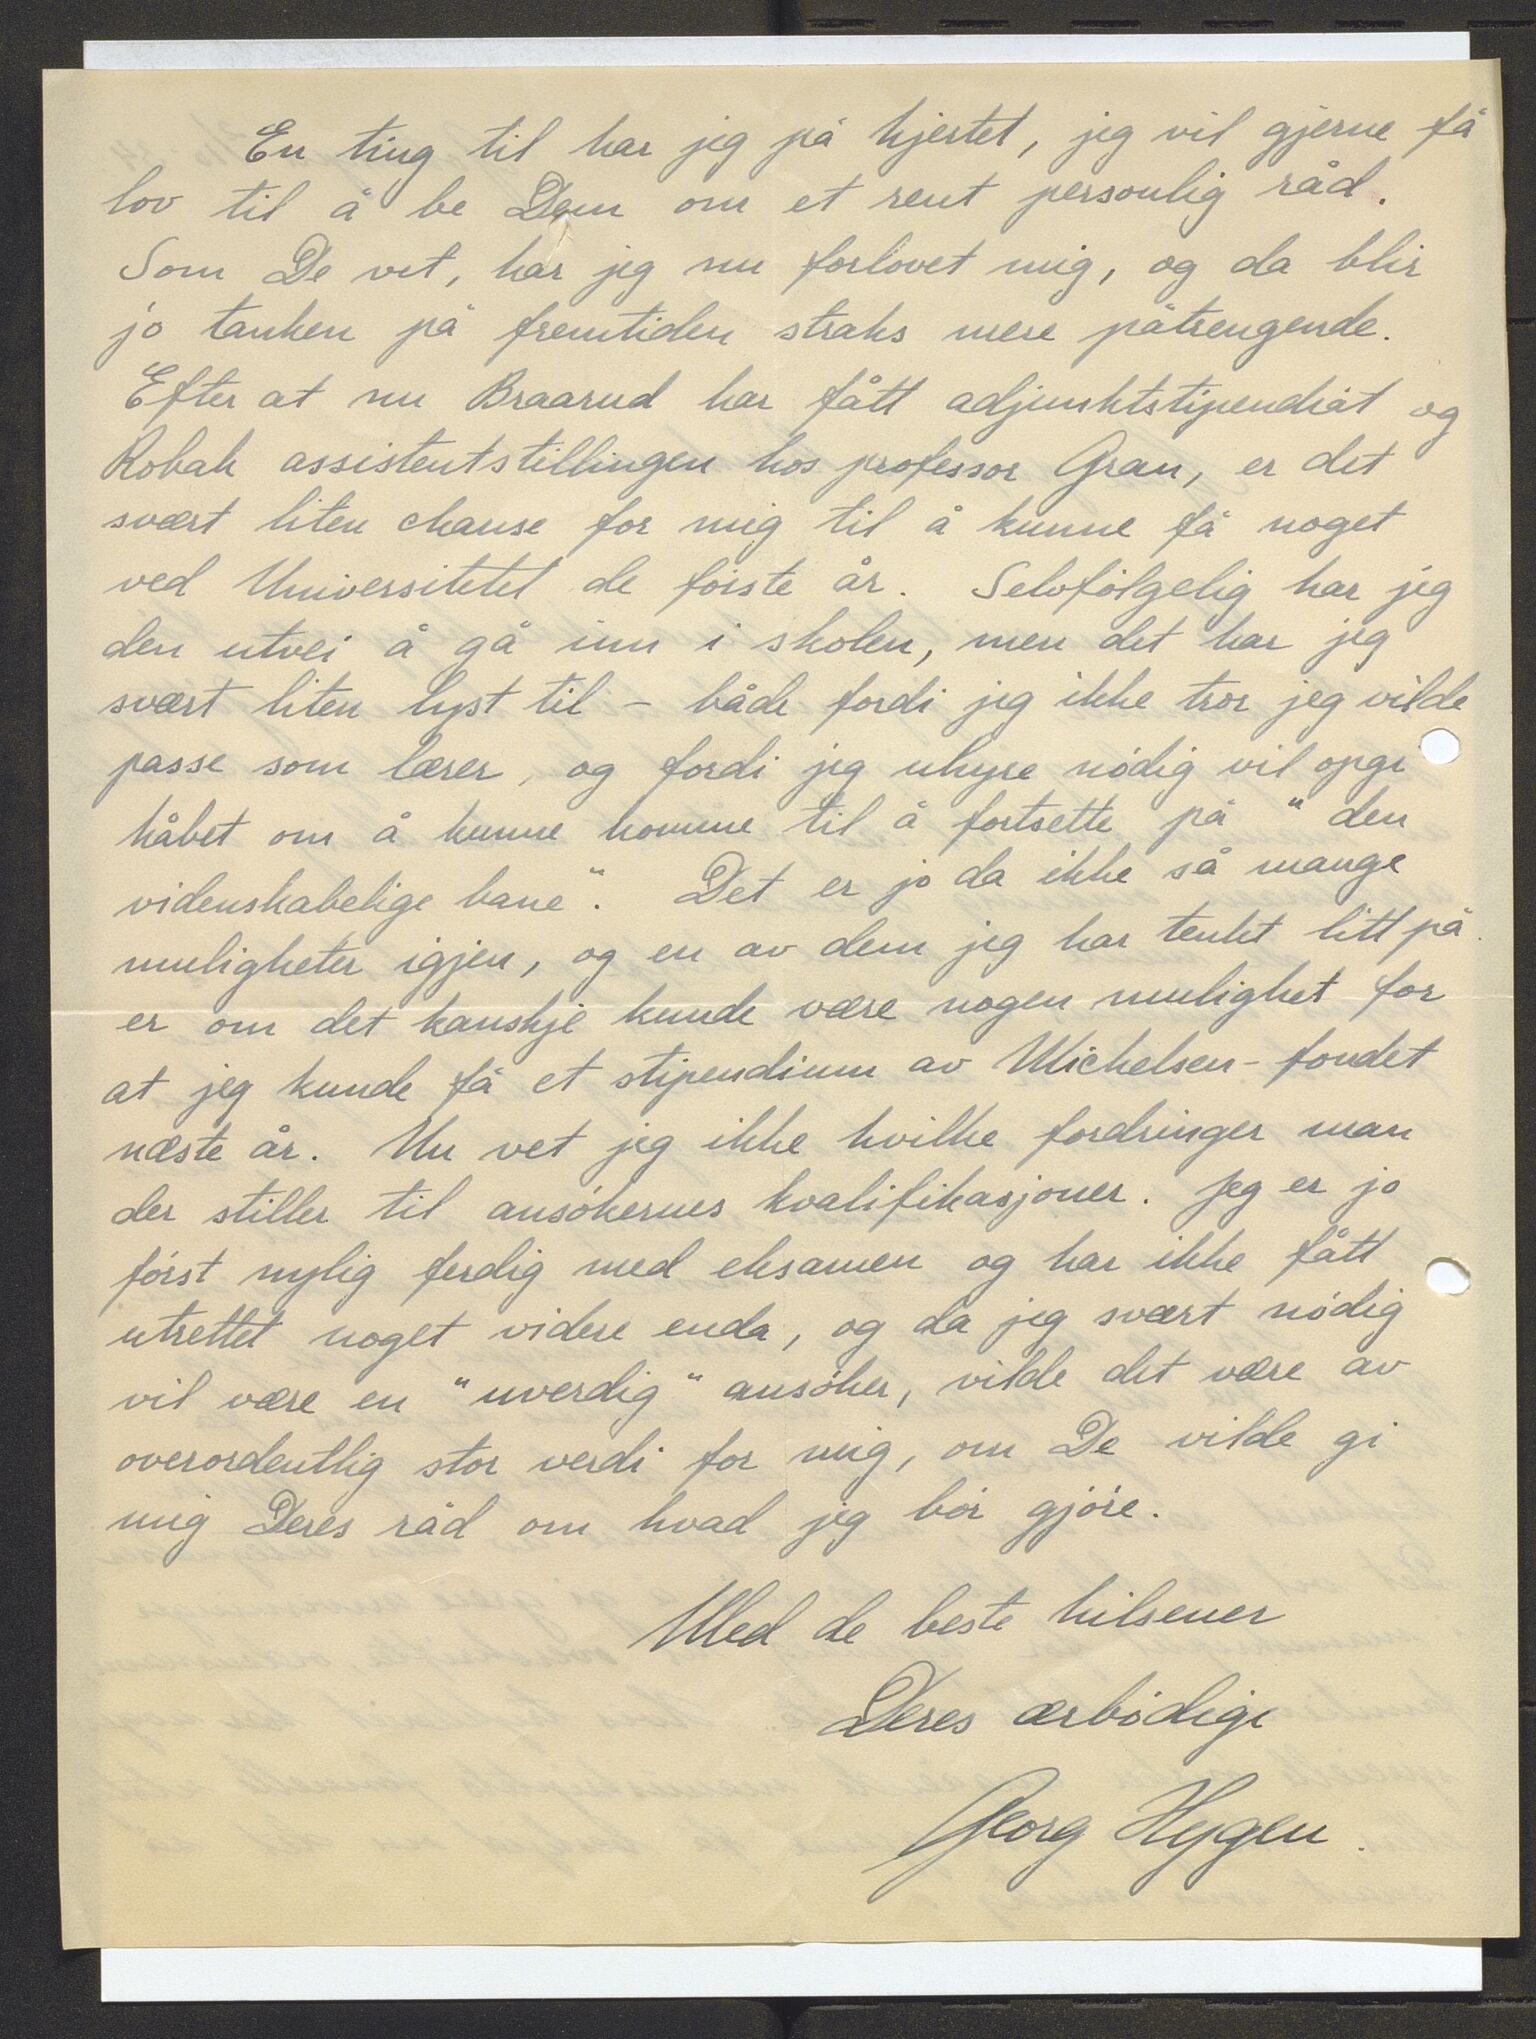 En ting til har jeg på hjertet, jeg vil gjerne få
lov til å be Dem om et rent personlig råd.
Som De vet, har jeg nu forlovet mig, og da blir
jo tanken på fremtiden straks mere påtrengende.
Efter at nu Braarud har fått adjunktstipendiat og
Robak assistentstillingen hos professor Gran, er det
svært liten chanse for mig til å kunne få noget
ved Universitetet de første år. Selvfølgelig har jeg
den utvei å gå inn i skolen, men det har jeg
svært liten lyst til - både fordi jeg ikke tror jeg vilde
passe som lærer, og fordi jeg uhyre nødig vil opgi
håbet om å kunne komme til å fortsette på "den
videnskabelige bane". Det er jo da ikke så mange
muligheter igjen, og en av dem jeg har tenkt litt på
er om det kanskje kunde være nogen mulighet for
at jeg kunde få et stipendium av Michelsen-fondet
næste år. Nu vet jeg ikke hvilke fordringer man
der stiller til ansøkernes kvalifikasjoner. Jeg er jo
først nylig ferdig med eksamen og har ikke fått
utrettet noget videre enda, og da jeg svært nødig
vil være en "uverdig" ansøker, vilde det være av
overordentlig stor verdi for mig, om De vilde gi
mig Deres råd om hvad jeg bør gjøre.
Med de beste hilsener
Deres ærbødige
Georg Hygen.